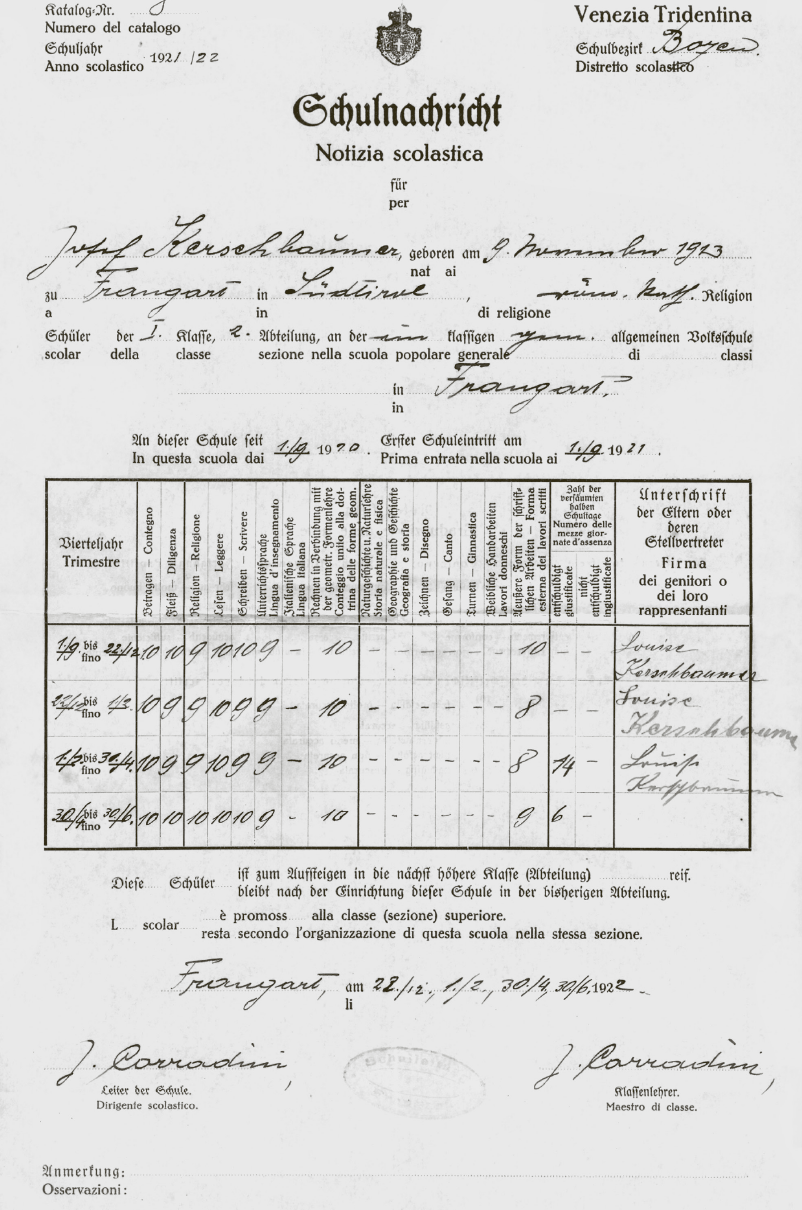 Katalog-Nr.
Numero del catalogo
Schuljahr
Anno scolastico 1921/22
Venezia Tridentina
Schulbezirk Bozen.
Distretto scolastico
Schulnachricht
Notizia scolastica
für
per
Josef Kerschbaumer, geboren am 9. November 1913
nat ai
zu Frangart in Südtirol, röm. kath. Religion
a in di religione
Schüler der I. Klasse, 2. Abteilung, an der ein klassigen gem. allgemeinen Volksschule
scolar della classe sezione nella scuola popolare generale di classi
in Frangart.
in
An dieser Schule seit 1./9 1920. Erster Schuleintritt am
In questa scuola dai Prima entrata nella scuola ai 1./9 1921.
Vierteljahr
Trimestre
Betragen — Contegno
Fleiß — Diligenza
Religion — Religione
Lesen — Leggere
Schreiben — Scrivere
Unterrichtssprache
Lingua d'insegnamento
Italienische Sprache
Lingua italiana
Rechnen in Verbindung mit
der geometr. Formenlehre
Conteggio unito alla dot-
trina delle forme geom.
Naturgeschichte u. Naturlehre
Storia naturale e fisica
Geographie und Geschichte
Geografia e storia
Zeichnen — Disegno
Gesang — Canto
Turnen — Ginnastica
Weibliche Handarbeiten
Lavori donneschi
Aeußere Form der schrift-
lichen Arbeiten — Forma
esterna dei lavori scritti
Zahl der
versäumten
halben
Schultage
Numero delle
mezze gior-
nate d'assenza
entschuldigt
giustificate
nicht
entschuldigt
ingiustificate
Unterschrift
der Eltern oder
deren
Stellvertreter
Firma
dei genitori o
dei loro
rappresentanti
1./9. bis fino 22/12. 10 10 9 10 10 9 – 10 – – – – – – 10 – – Louise Kerschbaumer
22/12 bis fino 1/2. 10 9 9 10 9 9 – 10 – – – – – – 8 – – Louise Kerschbaumer
1./2. bis fino 30/4. 10 9 9 10 9 9 – 10 – – – – – – 8 14 – Louise Kerschbaumer
30/4 bis fino 30/6. 10 10 10 10 10 9 – 10 – – – – – – 9 6 –
Diese Schüler ist zum Aufsteigen in die nächst höhere Klasse (Abteilung) reif.
bleibt nach der Einrichtung dieser Schule in der bisherigen Abteilung.
L scolar è promoss alla classe (sezione) superiore.
resta secondo l'organizzazione di questa scuola nella stessa sezione.
Frangart, am 22./12., 1./2., 30./4, 30/6. 1922.
li
J. Corradini J. Corradini
Leiter der Schule. Klassenlehrer.
Dirigente scolastico. Maestro di classe.
Anmerkung:
Osservazioni: